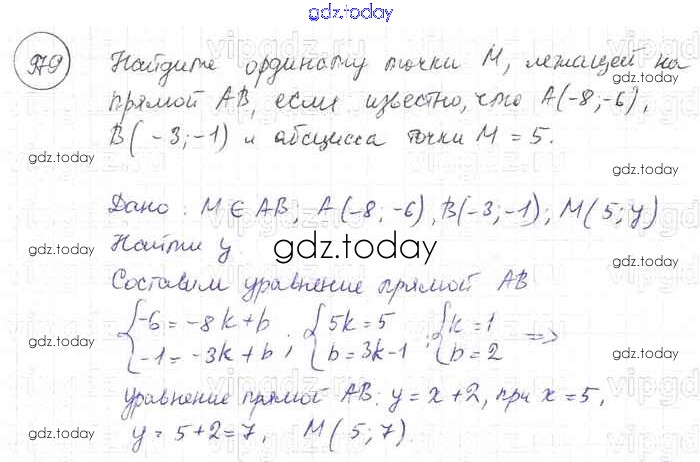 gdz.today
979
Найдите ординату точки М, лежащей на
прямой АВ, если известно, что А(-8;-6),
В(-3;-1) и абсцисса точки М = 5.
gdz.today
gdz.today
Дано: М ∈ АВ; А(-8;-6), В(-3;-1); М(5;у)
Найти у.
gdz.today
gdz.today
gdz.today
Составим уравнение прямой АВ
{-6 = -8k + b ; {5k = 5 ; {k = 1 =>
{-1 = -3k + b ; {b = 3k-1 {b = 2
gdz.today
gdz.today
уравнение прямой АВ: у = х + 2, при х = 5,
у = 5 + 2 = 7, М(5;7).
gdz.today
gdz.today